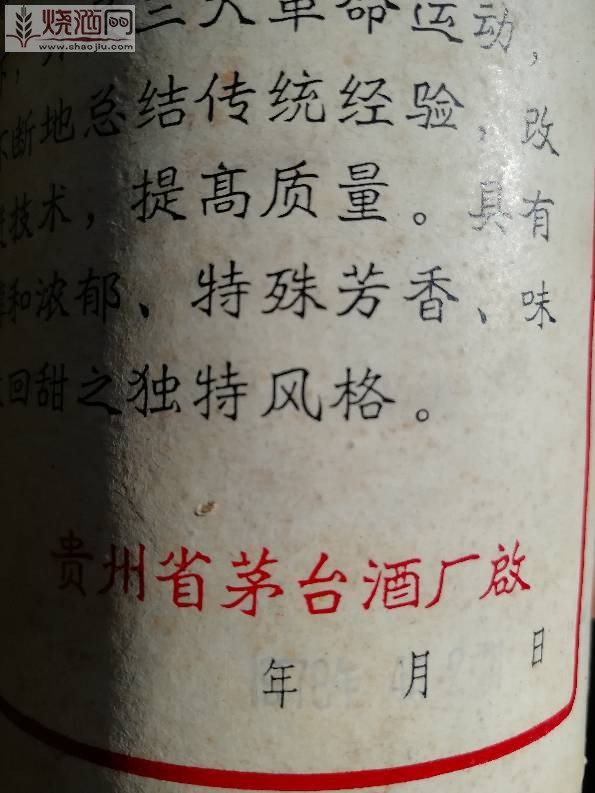 烧酒网
www.shaojiu.com
三大革命运动，
不断地总结传统经验，改
技术，提高质量。具有
和浓郁、特殊芳香、味
回甜之独特风格。
贵州省茅台酒厂啟
年 月 日